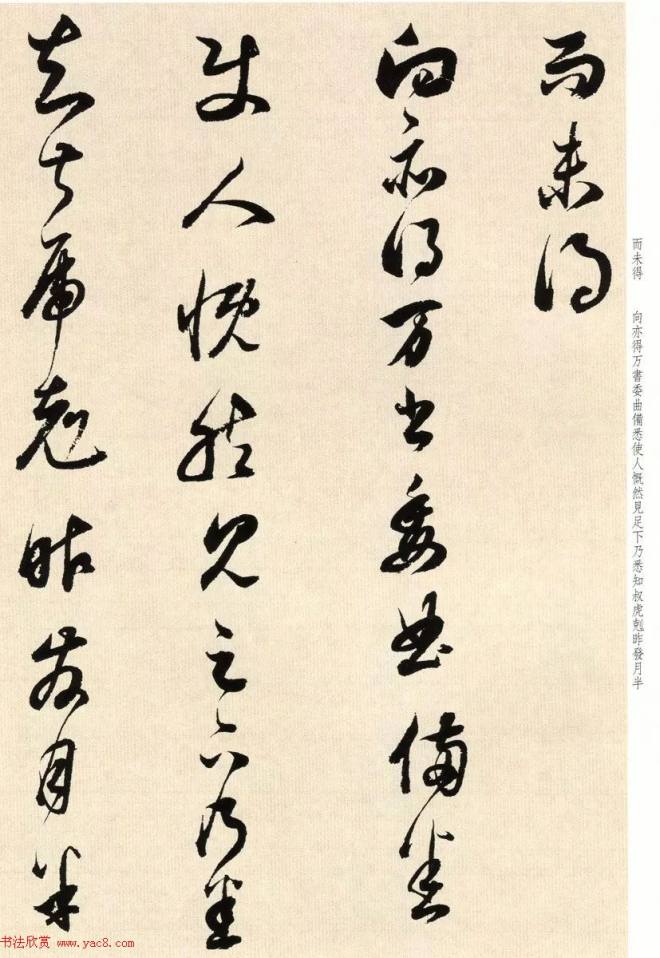 而未得
向亦得万書委曲備悉
使人慨然見足下乃悉
知叔虎剋昨發月半
而未得　向亦得万書委曲備悉使人慨然見足下乃悉知叔虎剋昨發月半
书法欣赏 www.yac8.com